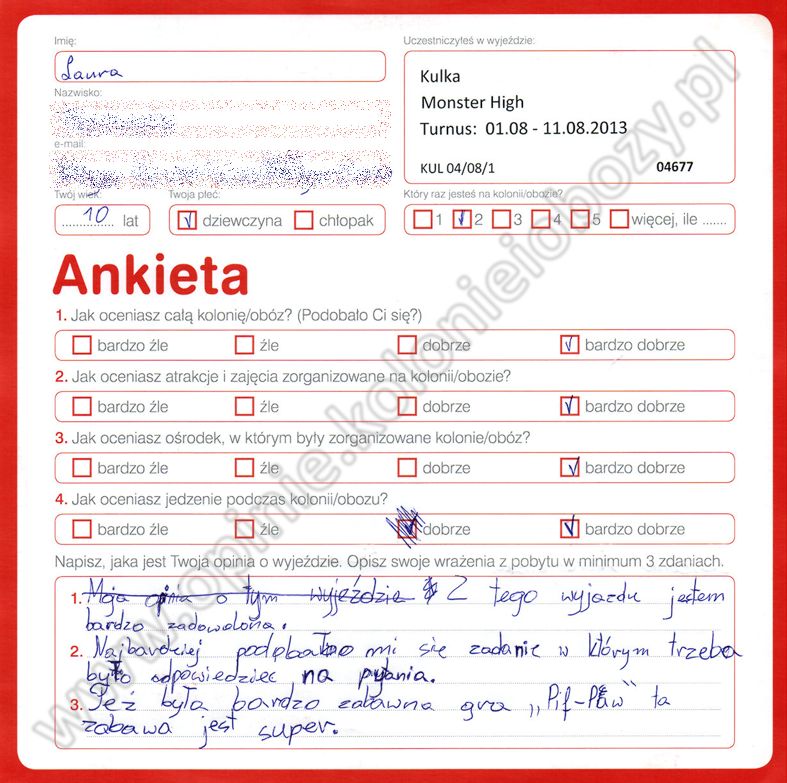 Imię:
Laura
Nazwisko:
e-mail:
Twój wiek:
10 lat
Twoja płeć:
dziewczyna chłopak
Uczestniczyłeś w wyjeździe:
Kulka
Monster High
Turnus: 01.08 - 11.08.2013
KUL 04/08/1 04677
Który raz jesteś na kolonii/obozie?
1 2 3 4 5 więcej, ile .......
Ankieta
1. Jak oceniasz całą kolonię/obóz? (Podobało Ci się?)
bardzo źle źle dobrze bardzo dobrze
2. Jak oceniasz atrakcje i zajęcia zorganizowane na kolonii/obozie?
bardzo źle źle dobrze bardzo dobrze
3. Jak oceniasz ośrodek, w którym były zorganizowane kolonie/obóz?
bardzo źle źle dobrze bardzo dobrze
4. Jak oceniasz jedzenie podczas kolonii/obozu?
bardzo źle źle dobrze bardzo dobrze
Napisz, jaka jest Twoja opinia o wyjeździe. Opisz swoje wrażenia z pobytu w minimum 3 zdaniach.
1. Moja opinia o tym wyjeździe Z tego wyjazdu jestem
bardzo zadowolona.
2. Najbardziej podobało mi się zadanie w którym trzeba
było odpowiedzieć na pytania.
3. Też była bardzo zabawna gra ,,Pif-Paw" ta
zabawa jest super.
www.opinie.kolonieiobozy.pl